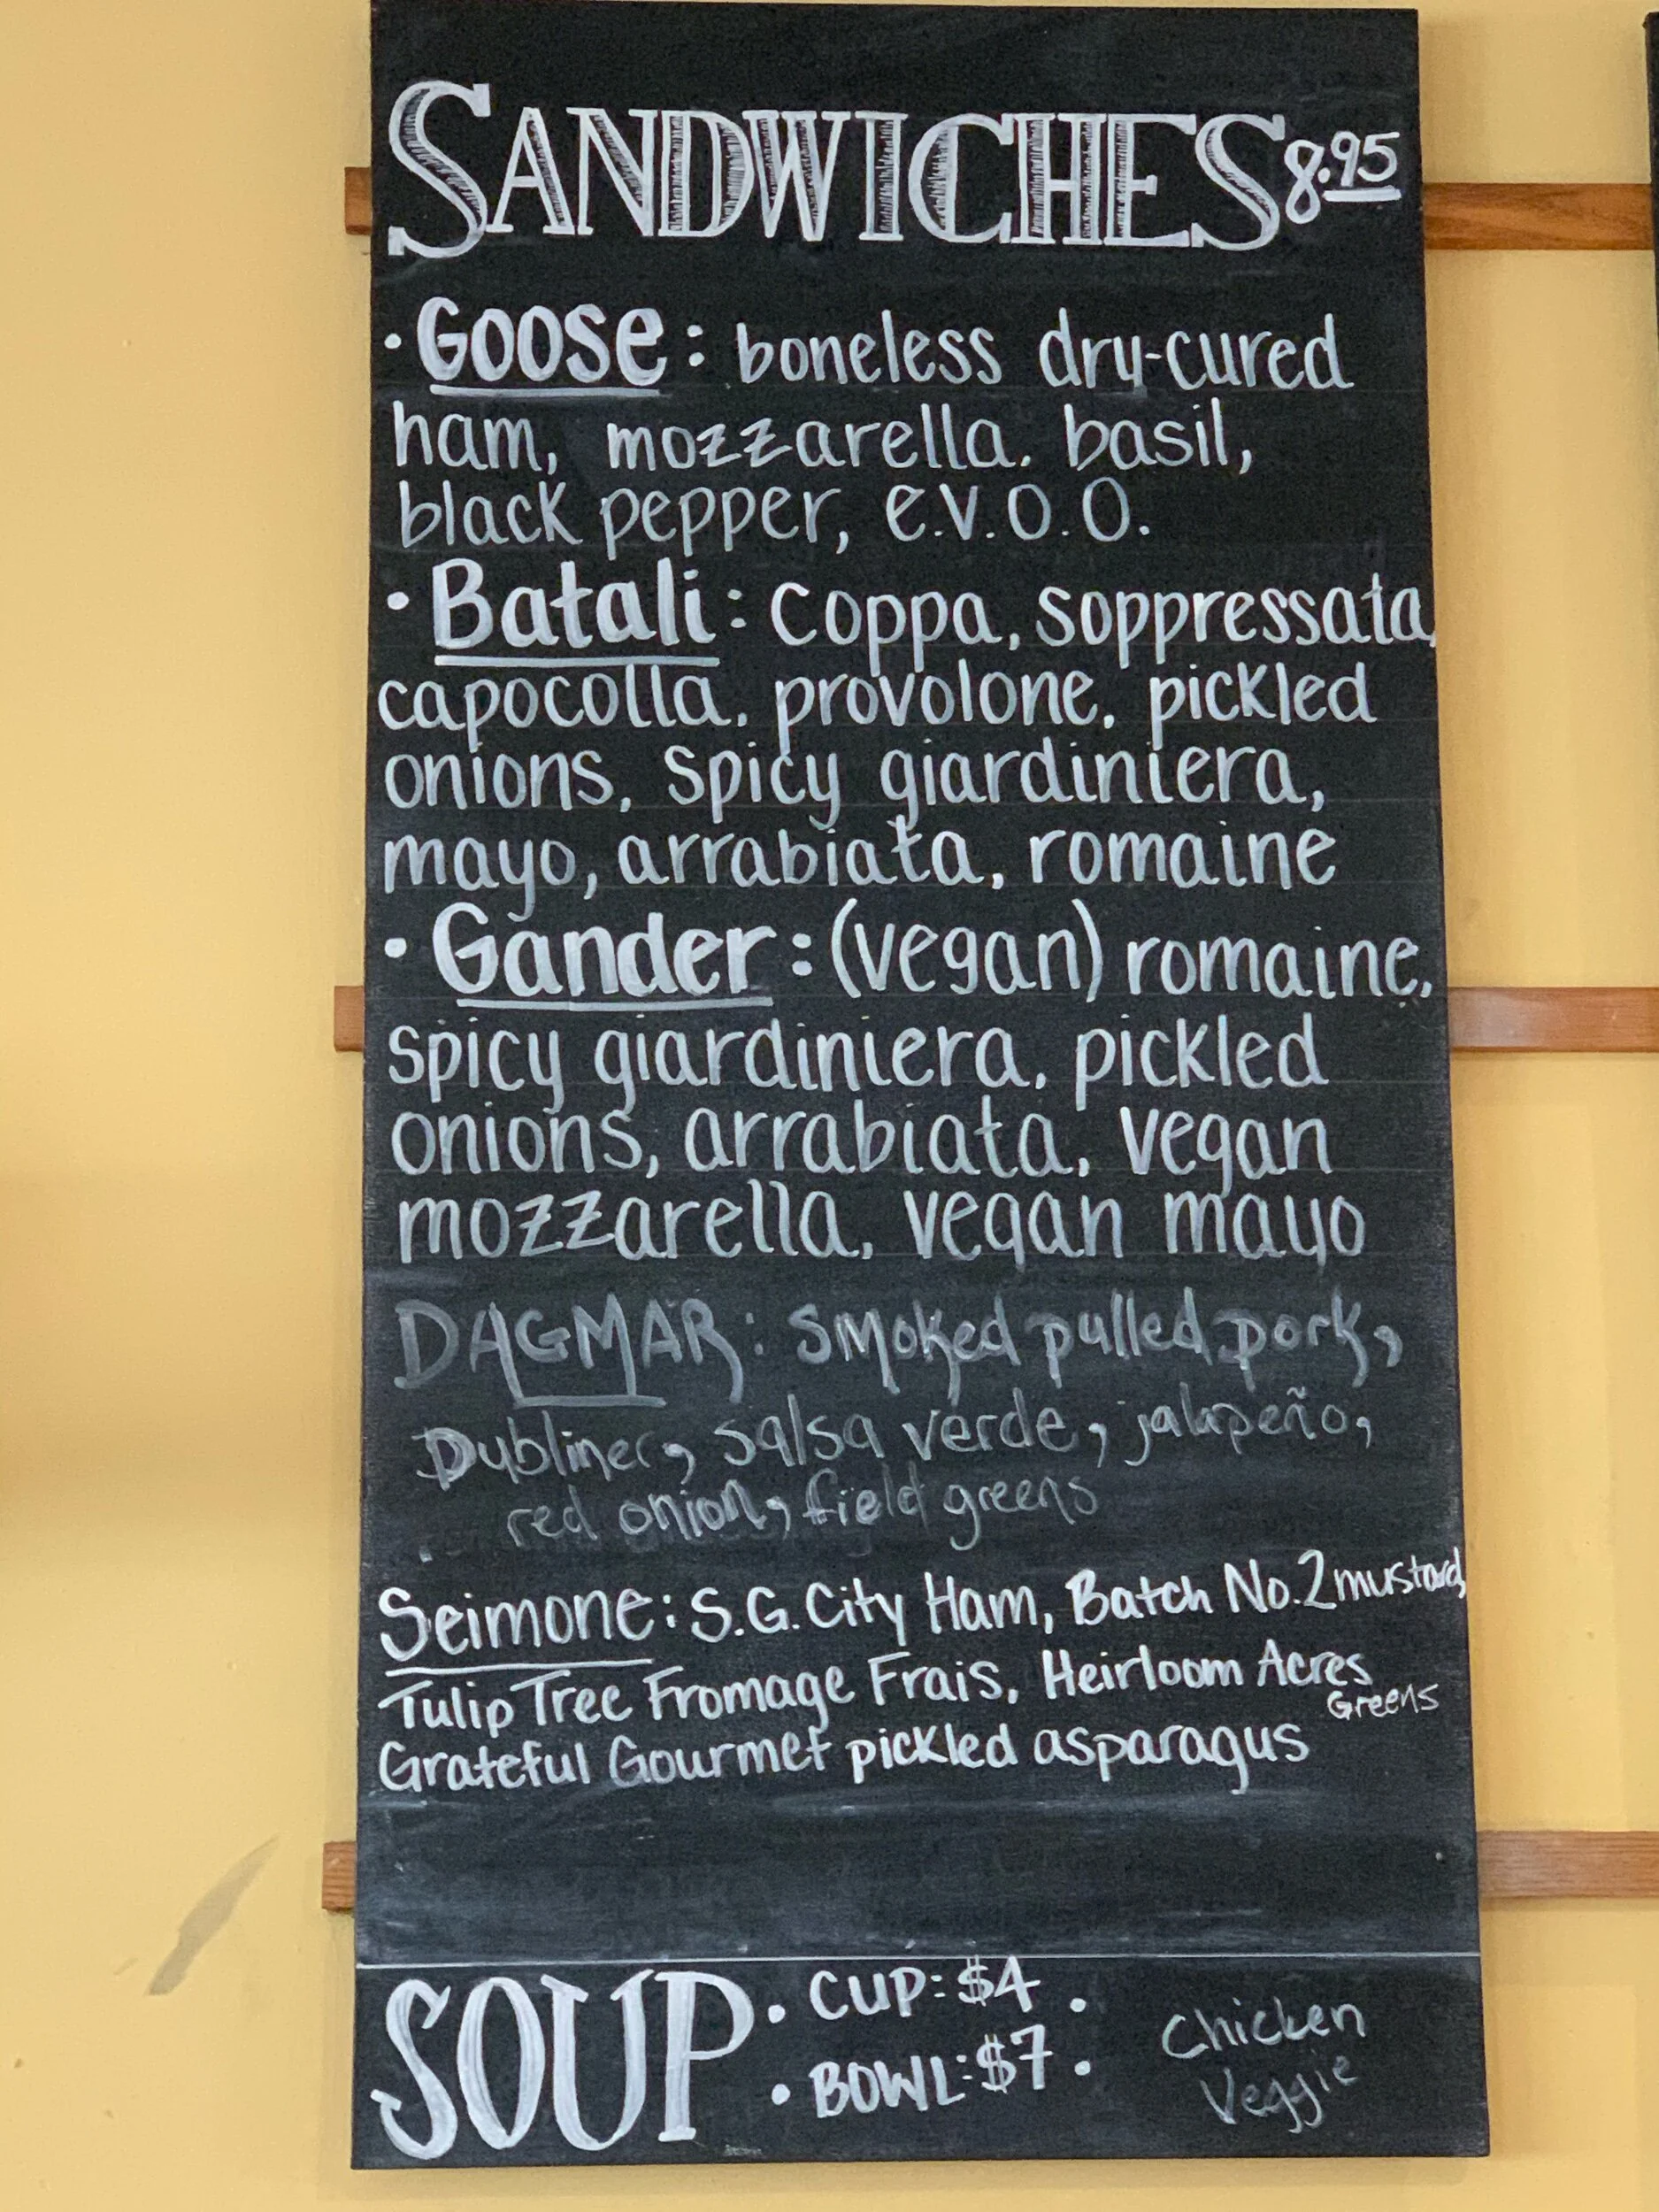 SANDWICHES 8.95
· Goose: boneless dry-cured
ham, mozzarella, basil,
black pepper, e.v.o.o.
· Batali: coppa, soppressata,
capocolla, provolone, pickled
onions, spicy giardiniera,
mayo, arrabiata, romaine
· Gander: (vegan) romaine,
spicy giardiniera, pickled
onions, arrabiata, vegan
mozzarella, vegan mayo
DAGMAR: smoked pulled pork,
Dubliner, salsa verde, jalapeño,
red onion, field greens
Seimone: S.G. City Ham, Batch No.2 mustard,
Tulip Tree Fromage Frais, Heirloom Acres
Greens
Grateful Gourmet pickled asparagus
SOUP
· CUP: $4 ·
· BOWL: $7 ·
Chicken
Veggie